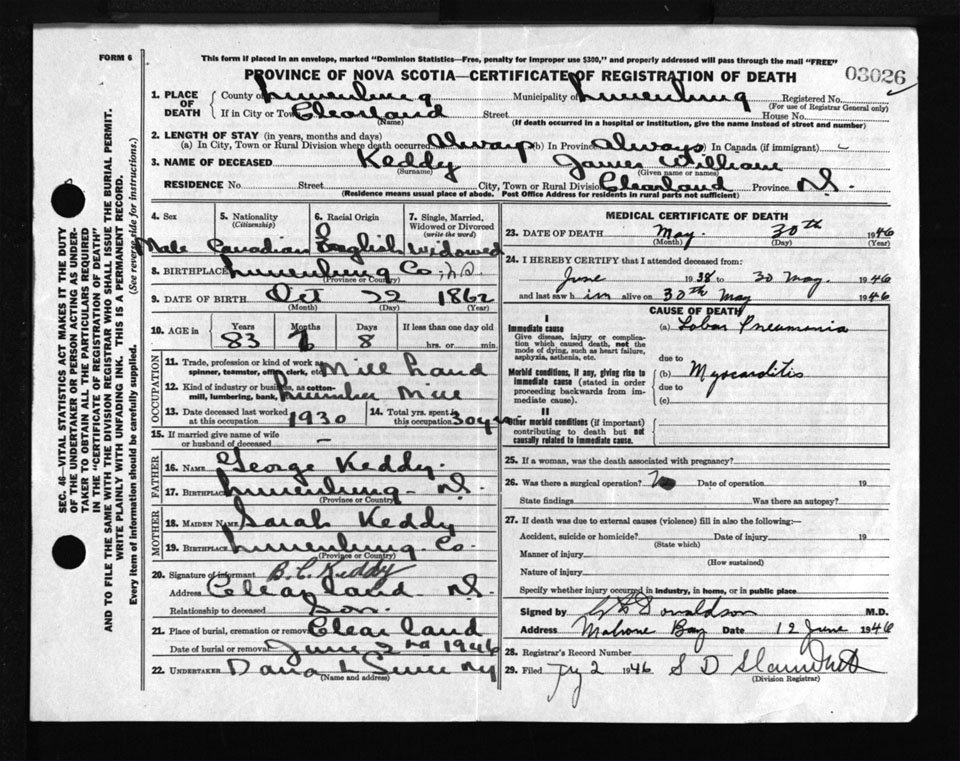 FORM 6
This form if placed in an envelope, marked "Dominion Statistics—Free, penalty for improper use $300," and properly addressed will pass through the mail "FREE"
PROVINCE OF NOVA SCOTIA—CERTIFICATE OF REGISTRATION OF DEATH
03026
1. PLACE OF DEATH County of Lunenburg Municipality of Lunenburg Registered No.
(For use of Registrar General only)
If in City or Town Clearland Street House No.
(Name) (If death occurred in a hospital or institution, give the name instead of street and number)
2. LENGTH OF STAY (in years, months and days)
(a) In City, Town or Rural Division where death occurred Always (b) In Province Always (c) In Canada (if immigrant)
3. NAME OF DECEASED Keddy James William
(Surname) (Given name or names)
RESIDENCE No. Street City, Town or Rural Division Clearland Province N.S.
(Residence means usual place of abode. Post Office Address for residents in rural parts not sufficient)
4. Sex 5. Nationality (Citizenship) 6. Racial Origin 7. Single, Married, Widowed or Divorced (write the word)
Male Canadian English Widowed
8. BIRTHPLACE Lunenburg Co., N.S.
(Province or Country)
9. DATE OF BIRTH Oct 22 1862
(Month) (Day) (Year)
10. AGE in Years Months Days If less than one day old
83 7 8 hrs. or min.
OCCUPATION
11. Trade, profession or kind of work as spinner, teamster, office clerk, etc. Mill hand
12. Kind of industry or business, as cotton-mill, lumbering, bank, Lumber Mill
13. Date deceased last worked at this occupation 1930 14. Total yrs. spent in this occupation 30 yrs
15. If married give name of wife or husband of deceased –
FATHER
16. NAME George Keddy.
17. BIRTHPLACE Lunenburg N.S.
(Province or Country)
MOTHER
18. MAIDEN NAME Sarah Keddy
19. BIRTHPLACE Lunenburg Co.
(Province or Country)
20. Signature of informant B. C. Keddy
Address Clearland N.S.
Relationship to deceased Son.
21. Place of burial, cremation or removal Clearland
Date of burial or removal June 2nd 1946
22. UNDERTAKER
(Name and address)
MEDICAL CERTIFICATE OF DEATH
23. DATE OF DEATH May. 30th 1946
(Month) (Day) (Year)
24. I HEREBY CERTIFY that I attended deceased from:
June 1938 to 30 May. 1946
and last saw him alive on 30th May 1946
CAUSE OF DEATH
I
Immediate cause (a) Lobar Pneumonia
Give disease, injury or complication which caused death, not the mode of dying, such as heart failure, asphyxia, asthenia, etc.
due to
Morbid conditions, if any, giving rise to immediate cause (stated in order proceeding backwards from immediate cause). (b) Myocarditis
due to
(c)
II
Other morbid conditions (if important) contributing to death but not causally related to immediate cause.
25. If a woman, was the death associated with pregnancy?
26. Was there a surgical operation? No Date of operation 19
State findings Was there an autopsy?
27. If death was due to external causes (violence) fill in also the following:—
Accident, suicide or homicide? Date of injury 19
(State which)
Manner of injury
(How sustained)
Nature of injury
Specify whether injury occurred in industry, in home, or in public place
Signed by Donaldson M.D.
Address Mahone Bay Date 12 June 1946
28. Registrar's Record Number
29. Filed Jy 2 1946 S D
(Division Registrar)
SEC. 46—VITAL STATISTICS ACT MAKES IT THE DUTY
OF THE UNDERTAKER OR PERSON ACTING AS UNDER-
TAKER TO OBTAIN ALL THE PARTICULARS REQUIRED
IN THE "CERTIFICATE OF REGISTRATION OF DEATH"
AND TO FILE THE SAME WITH THE DIVISION REGISTRAR WHO SHALL ISSUE THE BURIAL PERMIT.
WRITE PLAINLY WITH UNFADING INK. THIS IS A PERMANENT RECORD.
Every item of information should be carefully supplied. (See reverse side for instructions.)